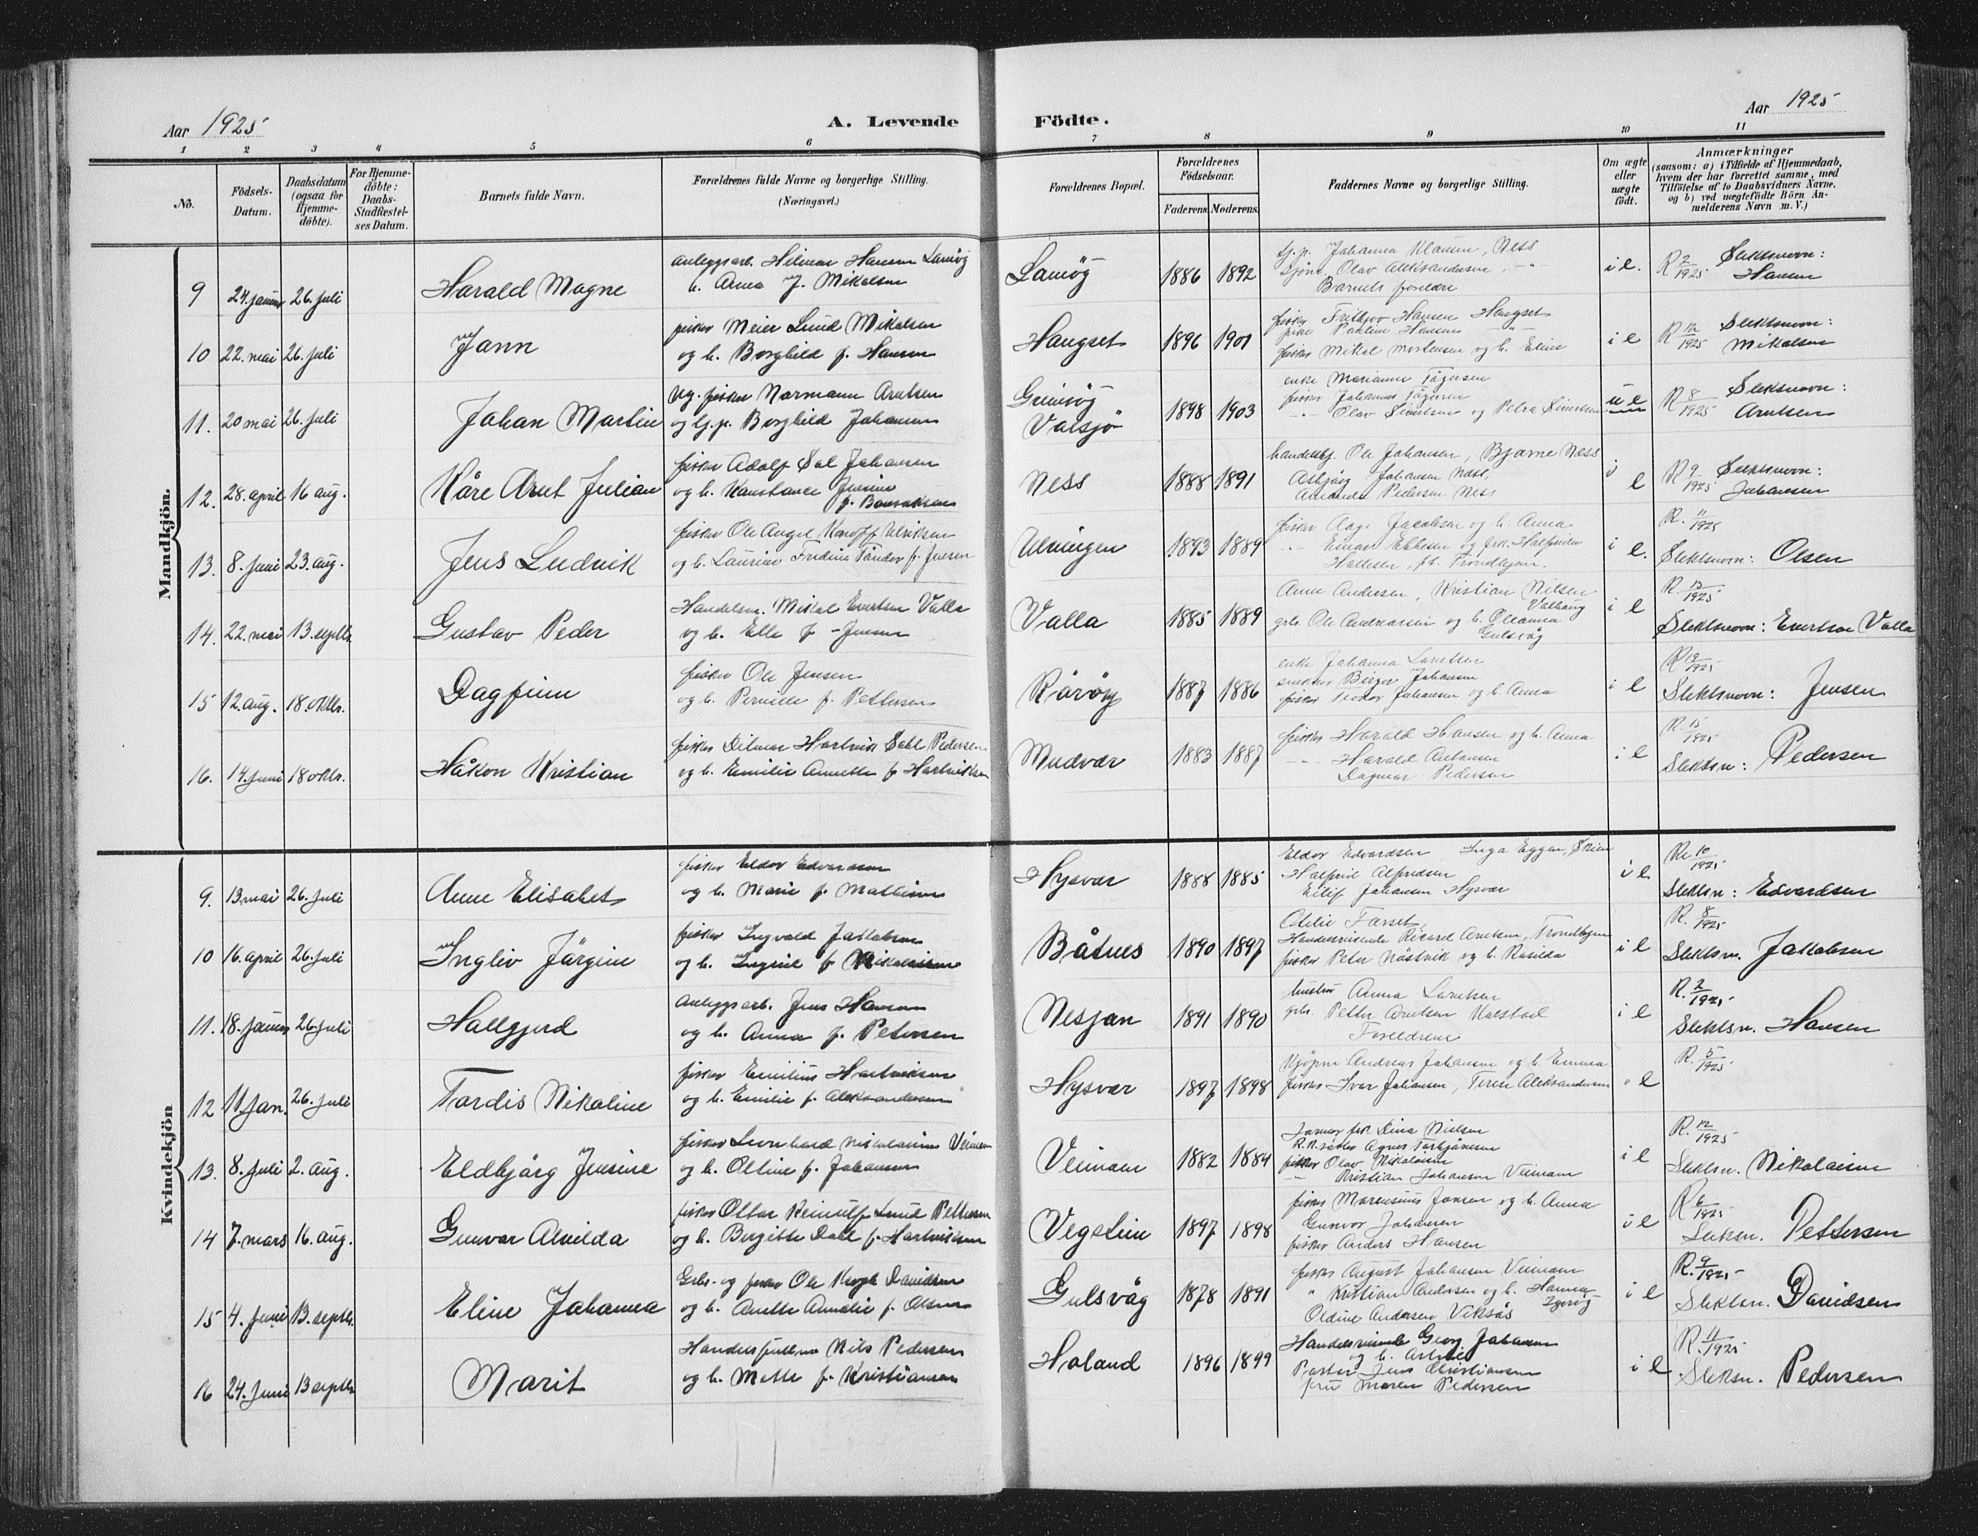 Aar 1925
A. Levende Födte.
Aar 1925
1 2 3 4 5 6 7 8 9 10 11
No.
Födsels-Datum.
Daabsdatum (ogsaa for Hjemme-döbte).
For Hjemme-döbte: Daabs-Stadfæstel-ses Datum.
Barnets fulde Navn.
Forældrenes fulde Navne og borgerlige Stilling. (Næringsvei.)
Forældrenes Bopæl.
Forældrenes Födselsaar.
Faderens. Moderens.
Faddernes Navne og borgerlige Stilling.
Om ægte eller uægte födt.
Anmærkninger
(saasom: a) i Tilfælde af Hjemmedaab, hvem der har forrettet samme, med Tilföielse af to Daabsvidners Navne, og b) ved uægtefödte Börn An-melderens Navn m. V.)
Mandkjön.
9 24. januar 26. juli Harald Magne
anleggsarb. Hilmar Hansen Lamöy
h. Anna J. Mikalsen
Lamöy 1886 1892
Johanna Klausen, Ness
Olav Aleksandersen
Barnets foreldre
i e. R 2/1925 Slektsnavn: Hansen
10 22. mai 26. juli Jann
fisker Meier Lund Mikalsen
og h. Borghild f. Hansen
Haugset 1896 1901
fisker Fridtjov Hansen Haugset
pike Pauline Hansen
fisker Mikal Mortensen og h. Eline
i e R 12/1925 Slektsnavn: Mikalsen
11. 20 mai 26. juli Johan Martin
ug. fisker Normann Arntsen
og Borghild Johansen
Grimsöy Valsjö 1898 1903
enke Marianne
fisker Johannes
Olav Simonsen og Petra Simonsen
u e R 8/1925 Slektsnavn: Arntsen
12. 28. april 16 aug. Kåre Arnt Julian
fisker Adolf Johansen
og h. Konstance Jensine
Ness 1888 1891
Ole Johansen, Bjarne Ness
Asbjörg Johansen Ness,
Amanda Pedersen Ness
i e R 9/1925 Slektsnavn: Johansen
13. 8. juni 23. aug. Jens Ludvik
fisker Ole Angel Ulriksen
og h. f. Jensen
Ulvingen 1893 1889
fisker Aage Jacobsen og h. Anna
Einar Ebbesen og frk.
i e. R. 11/1925 Slektsnavn: Olsen
14. 22. mai 13. septbr. Gustav Peder
Handelsm. Mikal Evertsen Valla
og h. Elle f. Jensen
Valla 1885 1889
Anne Andersen, Kristian Nilsen
grb. Ole Andreassen og h. Oleanna
Gulsvåg
i e R. 12/1925 Slektsnavn: Evertsen Valla
15 12. aug. 18. oktbr. Dagfinn
fisker Ole Jensen
og h. Pernille f. Pettersen
Råröy 1887 1886
enke Johanna Lorentsen
snekker Birger Johansen
fisker Teodor Johansen og h. Anna
i e R 12/1925 Slektsnavn: Jensen
16. 14. juni 18 oktbr. Håkon Kristian
fisker Ditmar Hartvik Dahl Pedersen
og h. Emilie Annette f. Hartviksen
Mudvær 1883 1887
fisker Harald Hansen og h. Anna
Harald Antonsen
Dagmar Pedersen
i e R 15/1925 Slektsn: Pedersen
Kvindekjön
9. 13 mai 26. juli Anne Elisabet
fisker Eldor Edvardsen
og h. Marie f. Mathisen
Hysvær 1888 1885
Eldor Edvardsen Inga Eggen, Skien
Alfredsen
Eilif Johansen Hysvær
i e R. 10/1925 Slektsn: Edvardsen
10 16. april 26. juli Ingliv Jörgine
fisker Ingvald Jakobsen
og h. Ingrid f. Nikolaisen
Båtnes 1890 1897
Otelie Farset
Handelsreisende Rikard Arntsen, Trondhjem
fisker Peter Nöstvik og h. Rasilda
i e R. 8/1925 Slektsn. Jakobsen
11. 18. januar 26 juli Hallgjerd
anleggsarb. Jens Hansen
og h. Anna f. Petersen
Nesjan 1891 1890
hustru Anna Lorntsen
grb. Petter Arntsen
Foreldrene
i e R. 2/1925 Slektsn. Hansen
12 11. jan. 26. juli Tordis Nikoline
fisker Emilius Hartviksen
og h. Emilie f. Aleksandersen
Hysvær 1897 1898
Kjöpm Andreas Johansen og h. Emma
fisker Ivar Johansen, Terese Aleksandersen
i e R. 5/1925
13. 8. juli 2. aug. Eldbjörg Jensine
fisker Leonhard Nikolaisen Veimoen
og h. Olline f. Johansen
Veimoen 1882 1884
frk. Dina Nielsen
Agnes Torbjörnsen
fisker Olav Nikolaisen
" Kristian Johansen Veimoen
i e R. 12/1925 Slektsn. Nikolaisen
14 7. mars 16. aug. Gunvor Alvilda
fisker Ottar Reinulf Lund Pettersen
og h. Bergitte Dahl f. Hartviksen
Vegstein 1897 1898
fisker Marensius Jonsen og h. Anna
Gunvor Johansen
fisker Anders Hansen
i e R 6/1925 Slektsn. Pettersen
15 4. juni 13. septbr. Eline Johanna
Grb.- og fisker Ole Krogh Davidsen
og h. Anette Amalie f. Olsen
Gulsvåg 1878 1891
fisker August Johansen Veimoen
" Kristian Andersen og h. Hanna
Oldine Andersen Viksås
i e R. 9/1925 Slektsn. Davidsen
16 24. juni 13 septbr. Marit
Handelsfullm Nils Pedersen
og h. Mette f. Kristiansen
Holand 1896 1899
Handelsreisende Georg Johansen
og h.
Pastor Jens Christiansen
fru Maren Pedersen
i e R. 11/1925 Slektsn. Pedersen